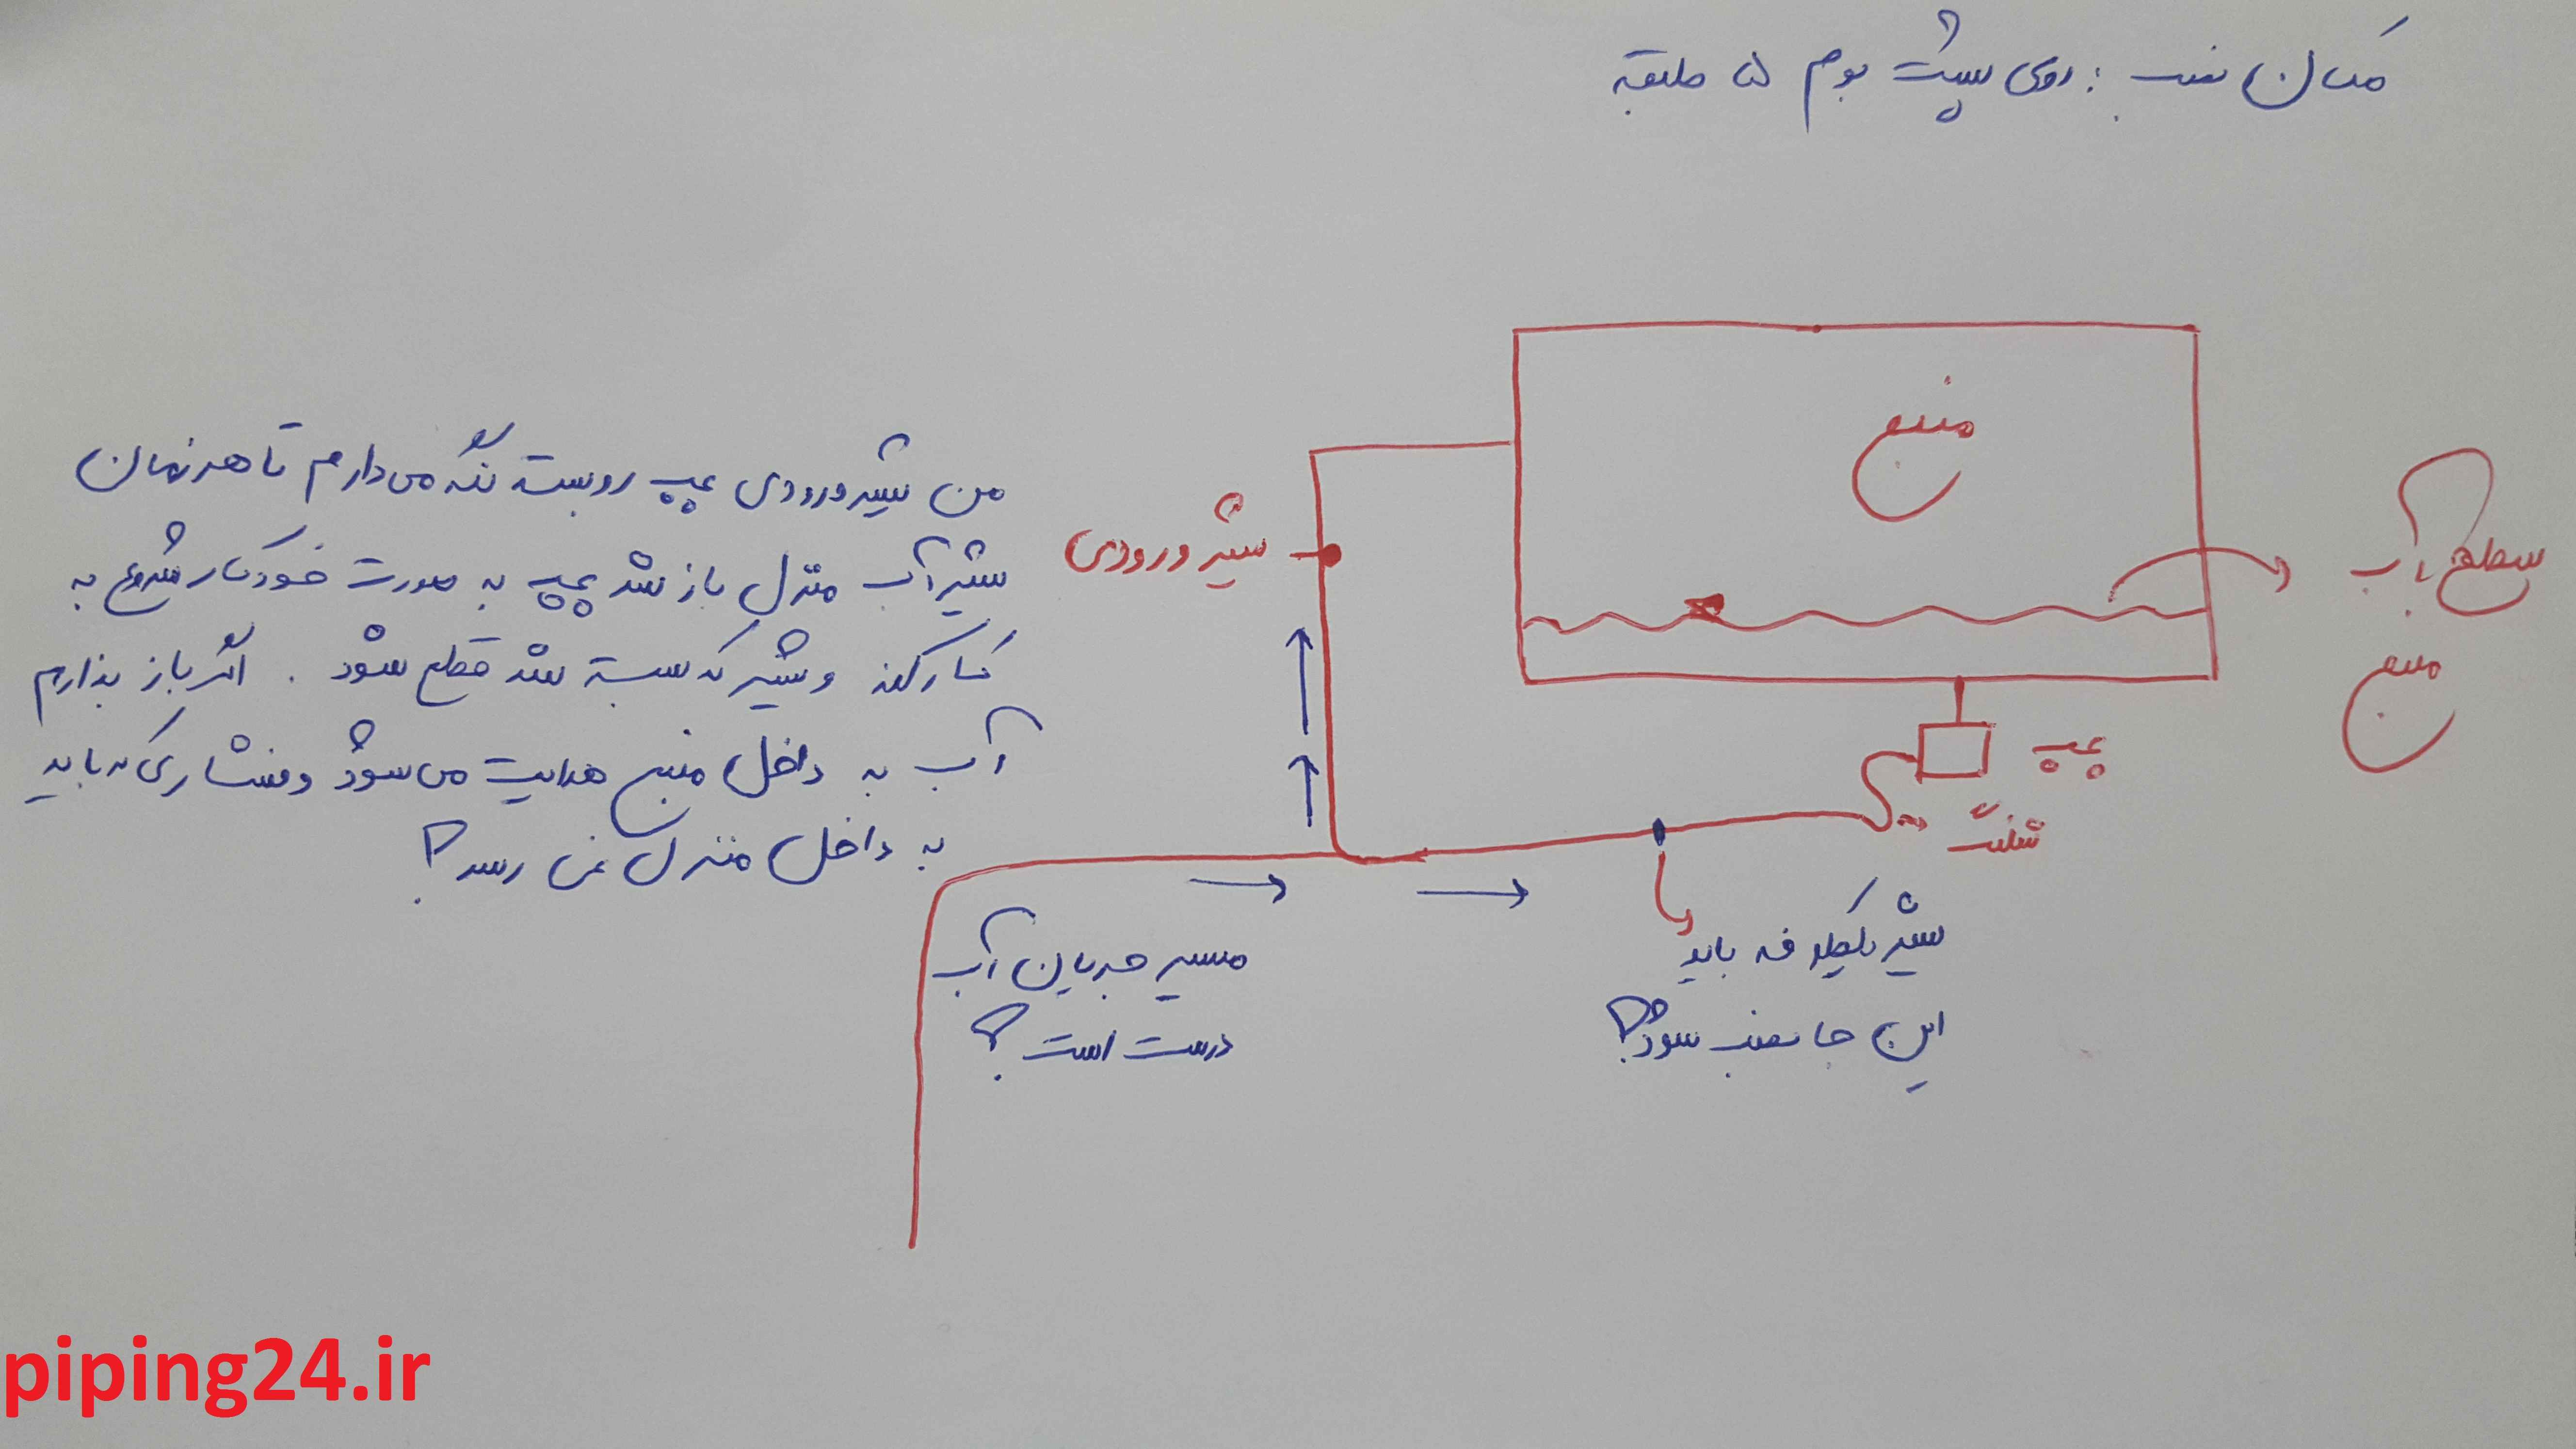 مکان نصب : روی پشت بوم ۵ طبقه
منبع
سطح آب
منبع
شیر ورودی
پمپ
شلنگ
من شیر ورودی پمپ رو بسته نگه می دارم تا هر زمان
شیر آب منزل باز شد پمپ به صورت خودکار شروع به
کار کند و شیر که بسته شد قطع شود . اگر باز بذارم
آب به داخل منبع هدایت می شود و فشاری که باید
به داخل منزل نمی رسد؟
شیر یکطرفه باید
این جا نصب شود؟
مسیر جریان آب
درست است؟
piping24.ir